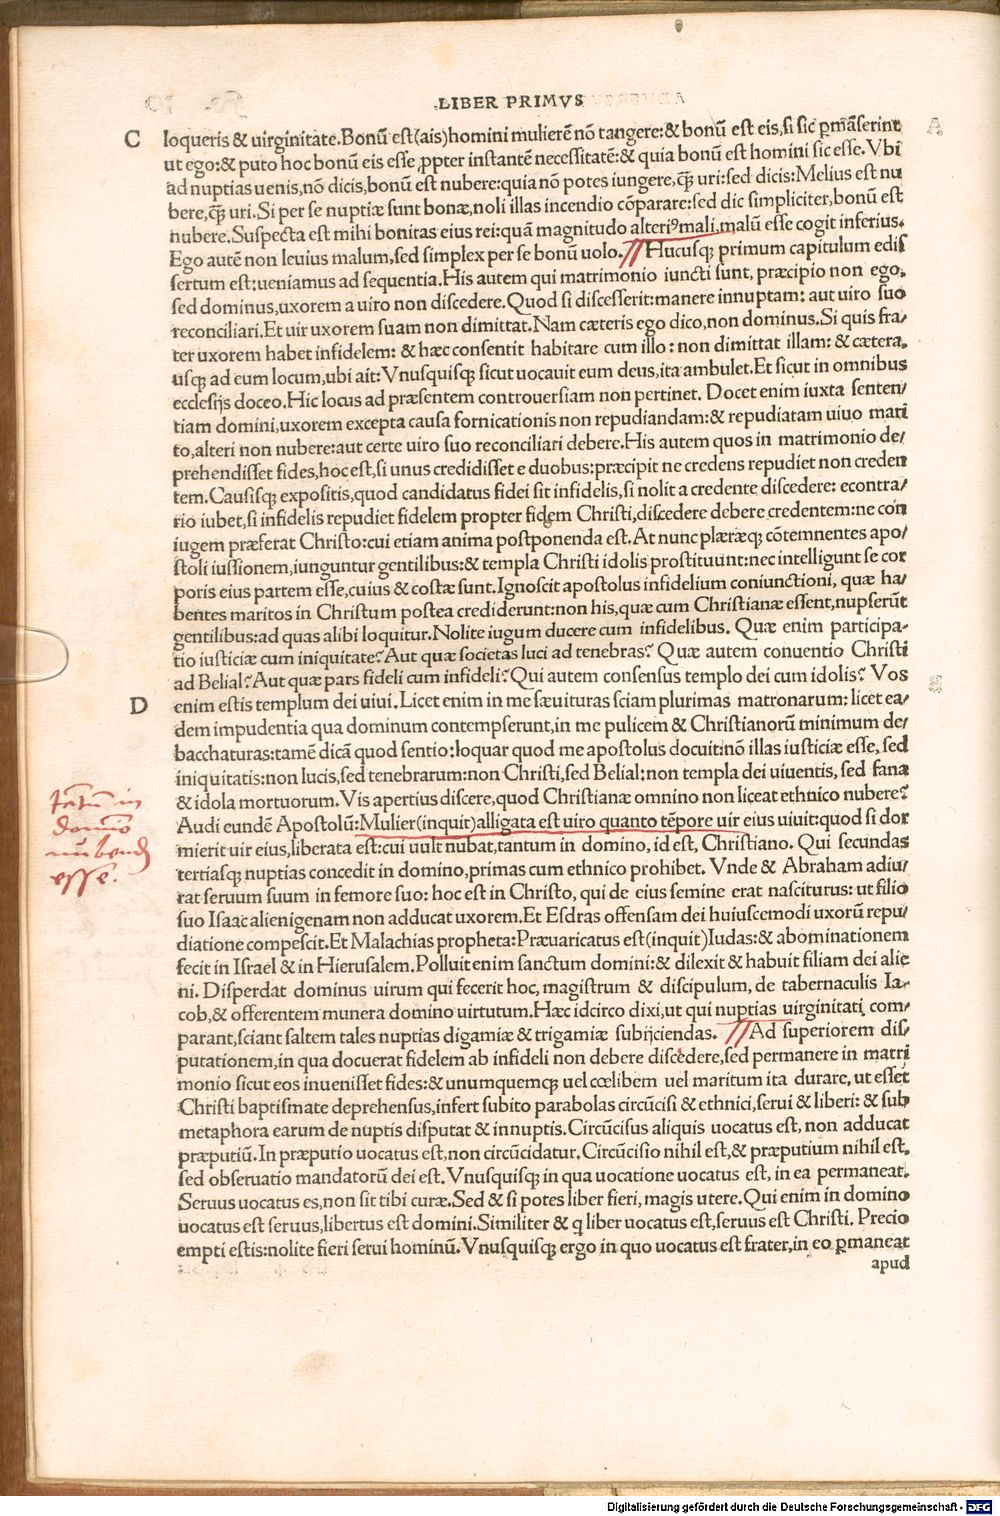 LIBER PRIMVS
C loqueris & uirginitate.Bonũ est(ais)homini mulierẽ nõ tangere:& bonũ est eis,si sic ꝑmãserint
ut ego:& puto hoc bonũ eis esse ꝓpter instantẽ necessitatẽ:& quia bonũ est homini sic esse.Vbi
ad nuptias uenis,nõ dicis,bonũ est nubere:quia nõ potes iungere,q̃ꝫ uri:sed dicis:Melius est nu
bere,q̃ꝫ uri.Si per se nuptiæ sunt bonæ,noli illas incendio cõparare:sed dic simpliciter,bonũ est
nubere.Suspecta est mihi bonitas eius rei:quã magnitudo alteriꝰ mali,malũ esse cogit inferius.
Ego autẽ non leuius malum,sed simplex per se bonũ uolo. Hucusqꝫ primum capitulum edis
sertum est:ueniamus ad sequentia.His autem qui matrimonio iuncti sunt, præcipio non ego,
sed dominus,uxorem a uiro non discedere.Quod si discesserit:manere innuptam: aut uiro suo
reconciliari.Et uir uxorem suam non dimittat.Nam cæteris ego dico,non dominus.Si quis fra/
ter uxorem habet infidelem: & hæc consentit habitare cum illo: non dimittat illam: & cætera,
usqꝫ ad eum locum,ubi ait:Vnusquisqꝫ sicut uocauit eum deus,ita ambulet.Et sicut in omnibus
ecclesijs doceo.Hic locus ad præsentem controuersiam non pertinet. Docet enim iuxta senten/
tiam domini,uxorem excepta causa fornicationis non repudiandam:& repudiatam uiuo mari
to,alteri non nubere:aut certe uiro suo reconciliari debere.His autem quos in matrimonio de/
prehendisset fides,hoc est,si unus credidisset e duobus:præcipit ne credens repudiet non creden
tem.Causisqꝫ expositis,quod candidatus fidei sit infidelis,si nolit a credente discedere: econtra/
rio iubet,si infidelis repudiet fidelem propter fidem Christi,discedere debere credentem:ne con
iugem præferat Christo:cui etiam anima postponenda est.At nunc plæræqꝫ cõtemnentes apo/
stoli iussionem,iunguntur gentilibus:& templa Christi idolis prostituunt:nec intelligunt se cor
poris eius partem esse,cuius & costæ sunt.Ignoscit apostolus infidelium coniunctioni, quæ ha/
bentes maritos in Christum postea crediderunt:non his,quæ cum Christianæ essent,nupserũt
gentilibus:ad quas alibi loquitur.Nolite iugum ducere cum infidelibus. Quæ enim participa-
tio iusticiæ cum iniquitate?Aut quæ societas luci ad tenebras? Quæ autem conuentio Christi
ad Belial?Aut quæ pars fideli cum infideli?Qui autem consensus templo dei cum idolis? Vos
D enim estis templum dei uiui.Licet enim in me sæuituras sciam plurimas matronarum: licet ea/
dem impudentia qua dominum contempserunt,in me pulicem & Christianorũ minimum de/
bacchaturas:tamẽ dicã quod sentio:loquar quod me apostolus docuit:nõ illas iusticiæ esse, sed
iniquitatis:non lucis,sed tenebrarum:non Christi,sed Belial:non templa dei uiuentis, sed fana
& idola mortuorum.Vis apertius discere,quod Christianæ omnino non liceat ethnico nubere?
Audi eundẽ Apostolũ:Mulier(inquit)alligata est uiro quanto tẽpore uir eius uiuit:quod si dor
mierit uir eius,liberata est:cui uult nubat,tantum in domino, id est, Christiano. Qui secundas
tertiasqꝫ nuptias concedit in domino,primas cum ethnico prohibet. Vnde & Abraham adiu/
rat seruum suum in femore suo: hoc est in Christo, qui de eius semine erat nasciturus: ut filio
suo Isaac alienigenam non adducat uxorem.Et Esdras offensam dei huiuscemodi uxorũ repu/
diatione compescit.Et Malachias propheta:Præuaricatus est(inquit)Iudas:& abominationem
fecit in Israel & in Hierusalem.Polluit enim sanctum domini:& dilexit & habuit filiam dei alie
ni. Disperdat dominus uirum qui fecerit hoc, magistrum & discipulum, de tabernaculis Ia-
cob,& offerentem munera domino uirtutum.Hæc idcirco dixi,ut qui nuptias uirginitati com-
parant,sciant saltem tales nuptias digamiæ & trigamiæ subijciendas. Ad superiorem dis/
putationem,in qua docuerat fidelem ab infideli non debere discedere,sed permanere in matri
monio sicut eos inuenisset fides:& unumquemqꝫ uel cœlibem uel maritum ita durare, ut esset
Christi baptismate deprehensus,infert subito parabolas circũcisi & ethnici,serui & liberi: & sub
metaphora earum de nuptis disputat & innuptis.Circũcisus aliquis uocatus est, non adducat
præputiũ.In præputio uocatus est,non circũcidatur.Circũcisio nihil est,& præputium nihil est,
sed obseruatio mandatorũ dei est. Vnusquisqꝫ in qua uocatione uocatus est, in ea permaneat.
Seruus uocatus es,non sit tibi curæ.Sed & si potes liber fieri,magis utere.Qui enim in domino
uocatus est seruus,libertus est domini.Similiter & q liber uocatus est,seruus est Christi. Precio
empti estis:nolite fieri serui hominũ.Vnusquisqꝫ ergo in quo uocatus est frater,in eo ꝑmaneat
apud
tãtũ in
domino
nubendũ
esse.
Digitalisierung gefördert durch die Deutsche Forschungsgemeinschaft - DFG